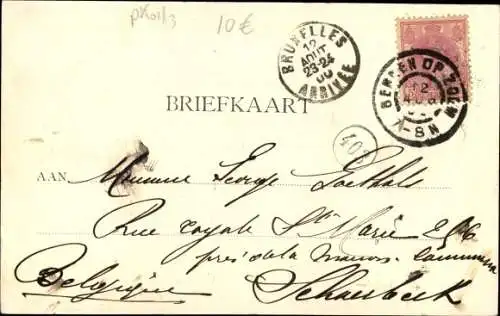 pkoi/3 10€
BRUXELLES
12
AOUT
23-24
00
ARRIVÉE
BERGEN OP ZOOM
12
AUG
7-8N
BRIEFKAART
401
AAN Monsieur George Goethals
Rue royale Ste Marie 256
près de la maison communa
Belgique Schaerbeek